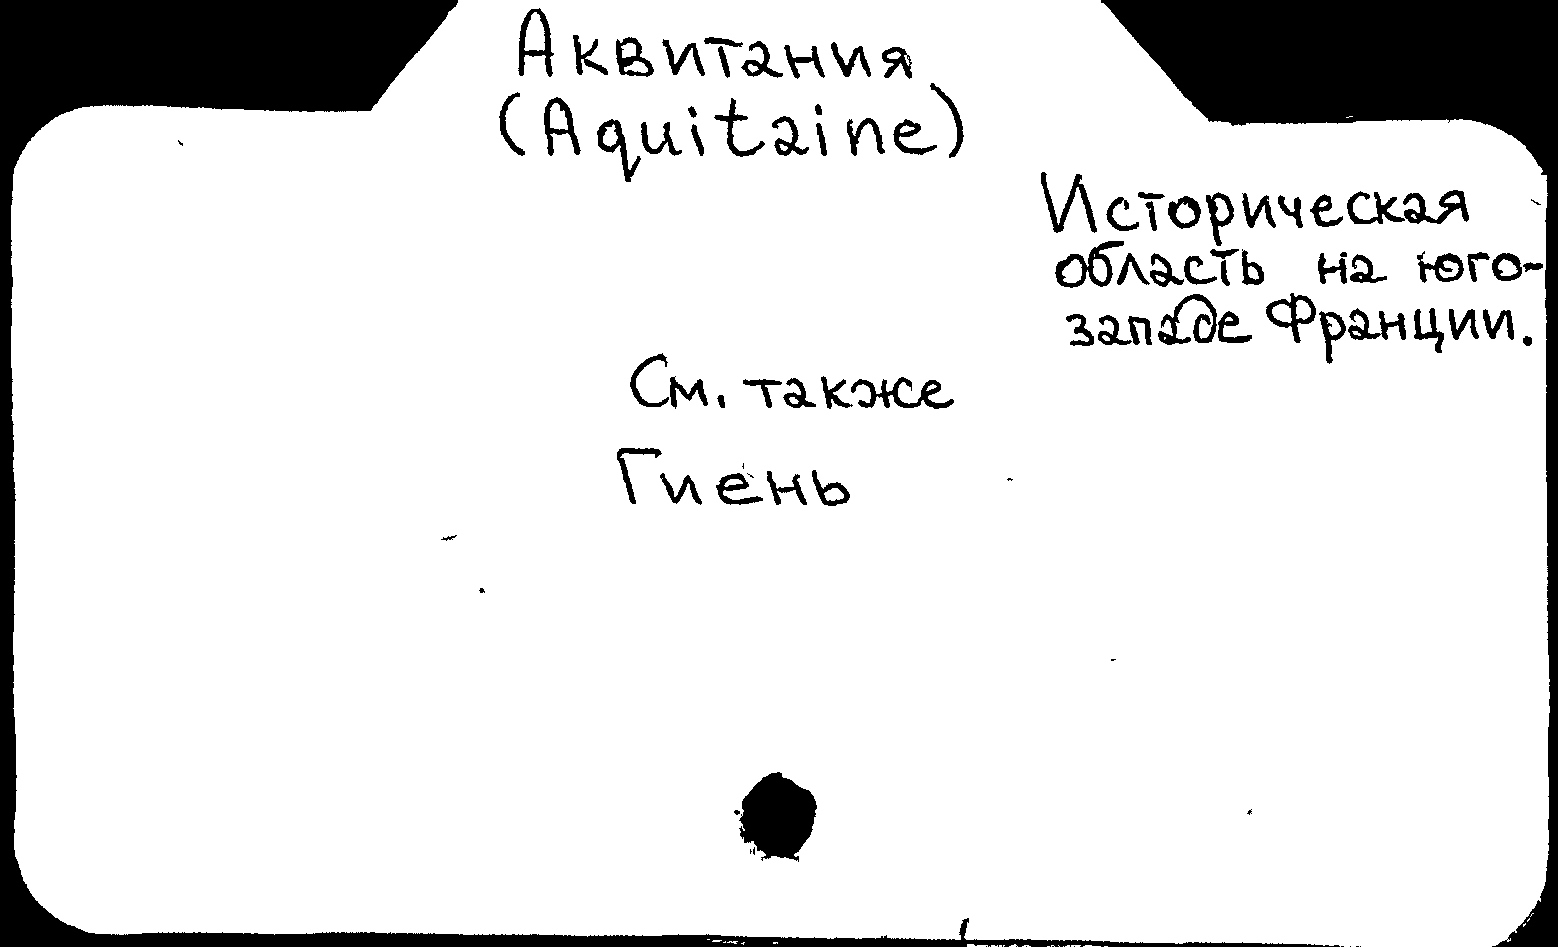 Аквитания
(Aquitaine)
Историческая
область на юго-
западе Франции.
См. также
Гиень